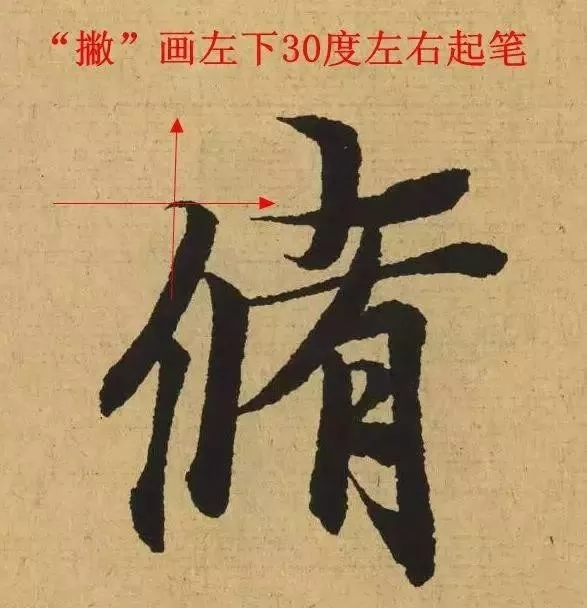 “撇”画左下30度左右起笔
脩